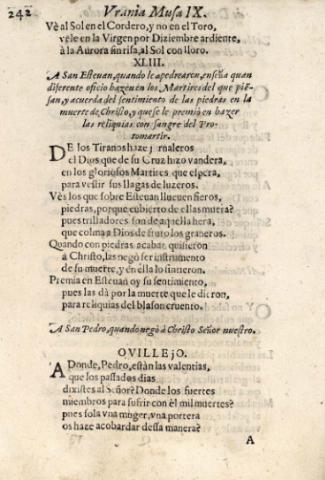 242 Vrania Musa IX.
Vè al Sol en el Cordero, y no en el Toro,
vèle en la Virgen por Diziembre ardiente,
à la Aurora sin risa, al Sol con lloro.
XLIII.
A San Esteuan, quando le apedrearon, enseña quan
diferente oficio hazen en los Martires del que pien-
san, y acuerda del sentimiento de las piedras en la
muerte de Christo, y que se le premiò en hazer
las reliquias con sangre del Pro-
tomartir.
DE los Tiranos haze jornaleros
el Dios que de su Cruz hizo vandera,
en los gloriosos Martires que espera,
para vestir sus llagas de luzeros.
Vès los que sobre Esteuan llueuen fieros,
piedras, porque cubierto de ellas muera?
pues trilladores son de aquella hera,
que colma a Dios de fruto los graneros.
Quando con piedras acabar quisieron
a Christo, las negò ser instrumento
de su muerte, y en ella lo sintieron.
Premia en Esteuan oy su sentimiento,
pues las dà por la muerte que le dieron,
para reliquias del blason cruento.
A San Pedro, quando negò à Christo Señor nuestro.
QVILLEJO.
ADonde, Pedro, estàn las valentias,
que los passados dias
dixistes al Señor? Donde los fuertes
miembros para sufrir con èl mil muertes?
pues sola vna muger, vna portera
os haze acobardar dessa manera?
A